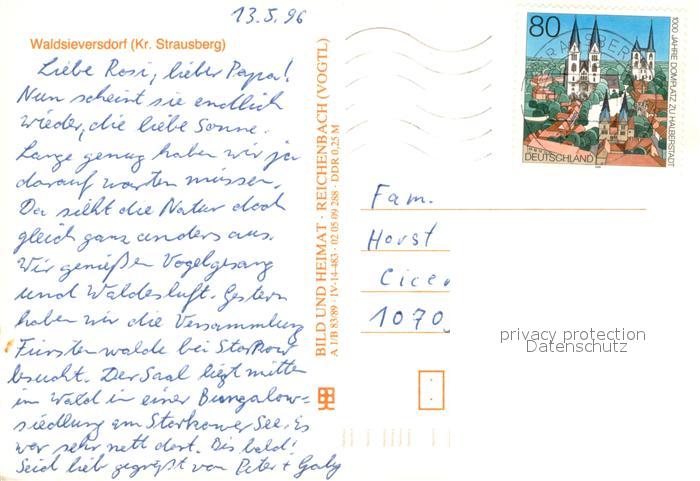 13.5.96
Waldsieversdorf (Kr. Strausberg)
Liebe Rosi, lieber Papa!
Nun scheint sie endlich
wieder, die liebe Sonne.
Lange genug haben wir ja
darauf warten müssen.
Da sieht die Natur doch
gleich ganz anders aus.
Wir genießen Vogelgesang
und Waldesluft. Gestern
haben wir die Versammlung
Fürstenwalde bei Storkow
besucht. Der Saal liegt mitten
im Wald in einer Bungalow=
siedlung am Storkower See. Es
war sehr nett dort. Bis bald!
Seid lieb gegrüßt von Peter + Gaby
BILD UND HEIMAT · REICHENBACH (VOGTL)
A 1/B 83/89 · IV-14-483 · 02 05 09 288 · DDR 0,25 M
80
1000 JAHRE DOMPLATZ ZU HALBERSTADT
DEUTSCHLAND
Fam.
Horst
Cicer
1070
privacy protection
Datenschutz